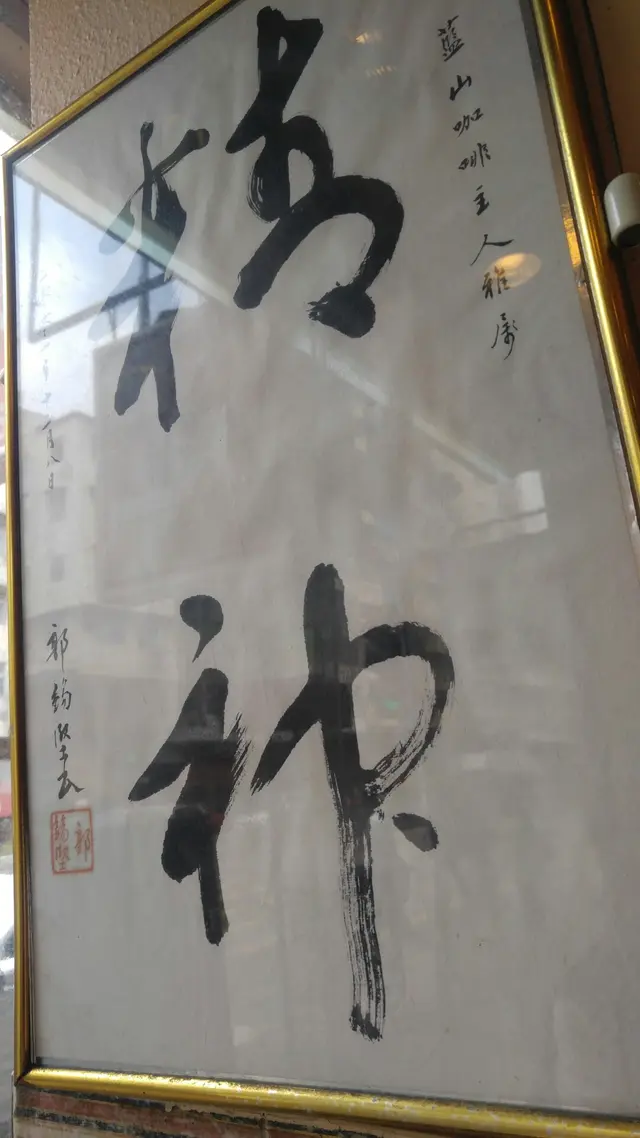 藍山咖啡主人雅屬
精神
年十二月八日
郭
郭